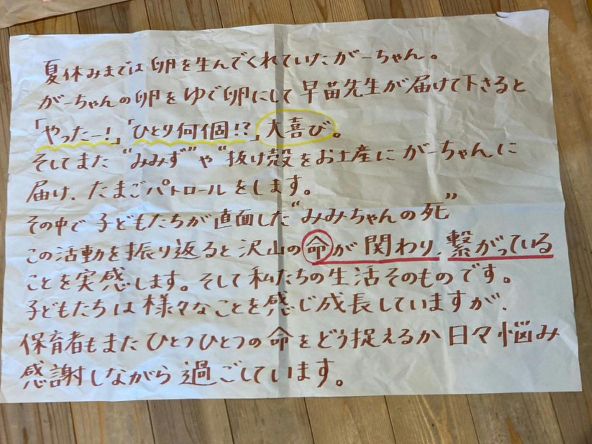 夏休みまでは卵を生んでくれていたがーちゃん。
がーちゃんの卵をゆで卵にして早苗先生が届けて下さると
「やったー!」「ひとり何個!?」大喜び。
そしてまた"みみず"や"抜け殻をお土産にがーちゃんに
届け、たまごパトロールをします。
その中で子どもたちが直面した"みみちゃんの死"
この活動を振り返ると沢山の命が関わり、繋がっている
ことを実感します。そして私たちの生活そのものです。
子どもたちは様々なことを感じ成長していますが、
保育者もまたひとつひとつの命をどう捉えるか日々悩み
感謝しながら過ごしています。